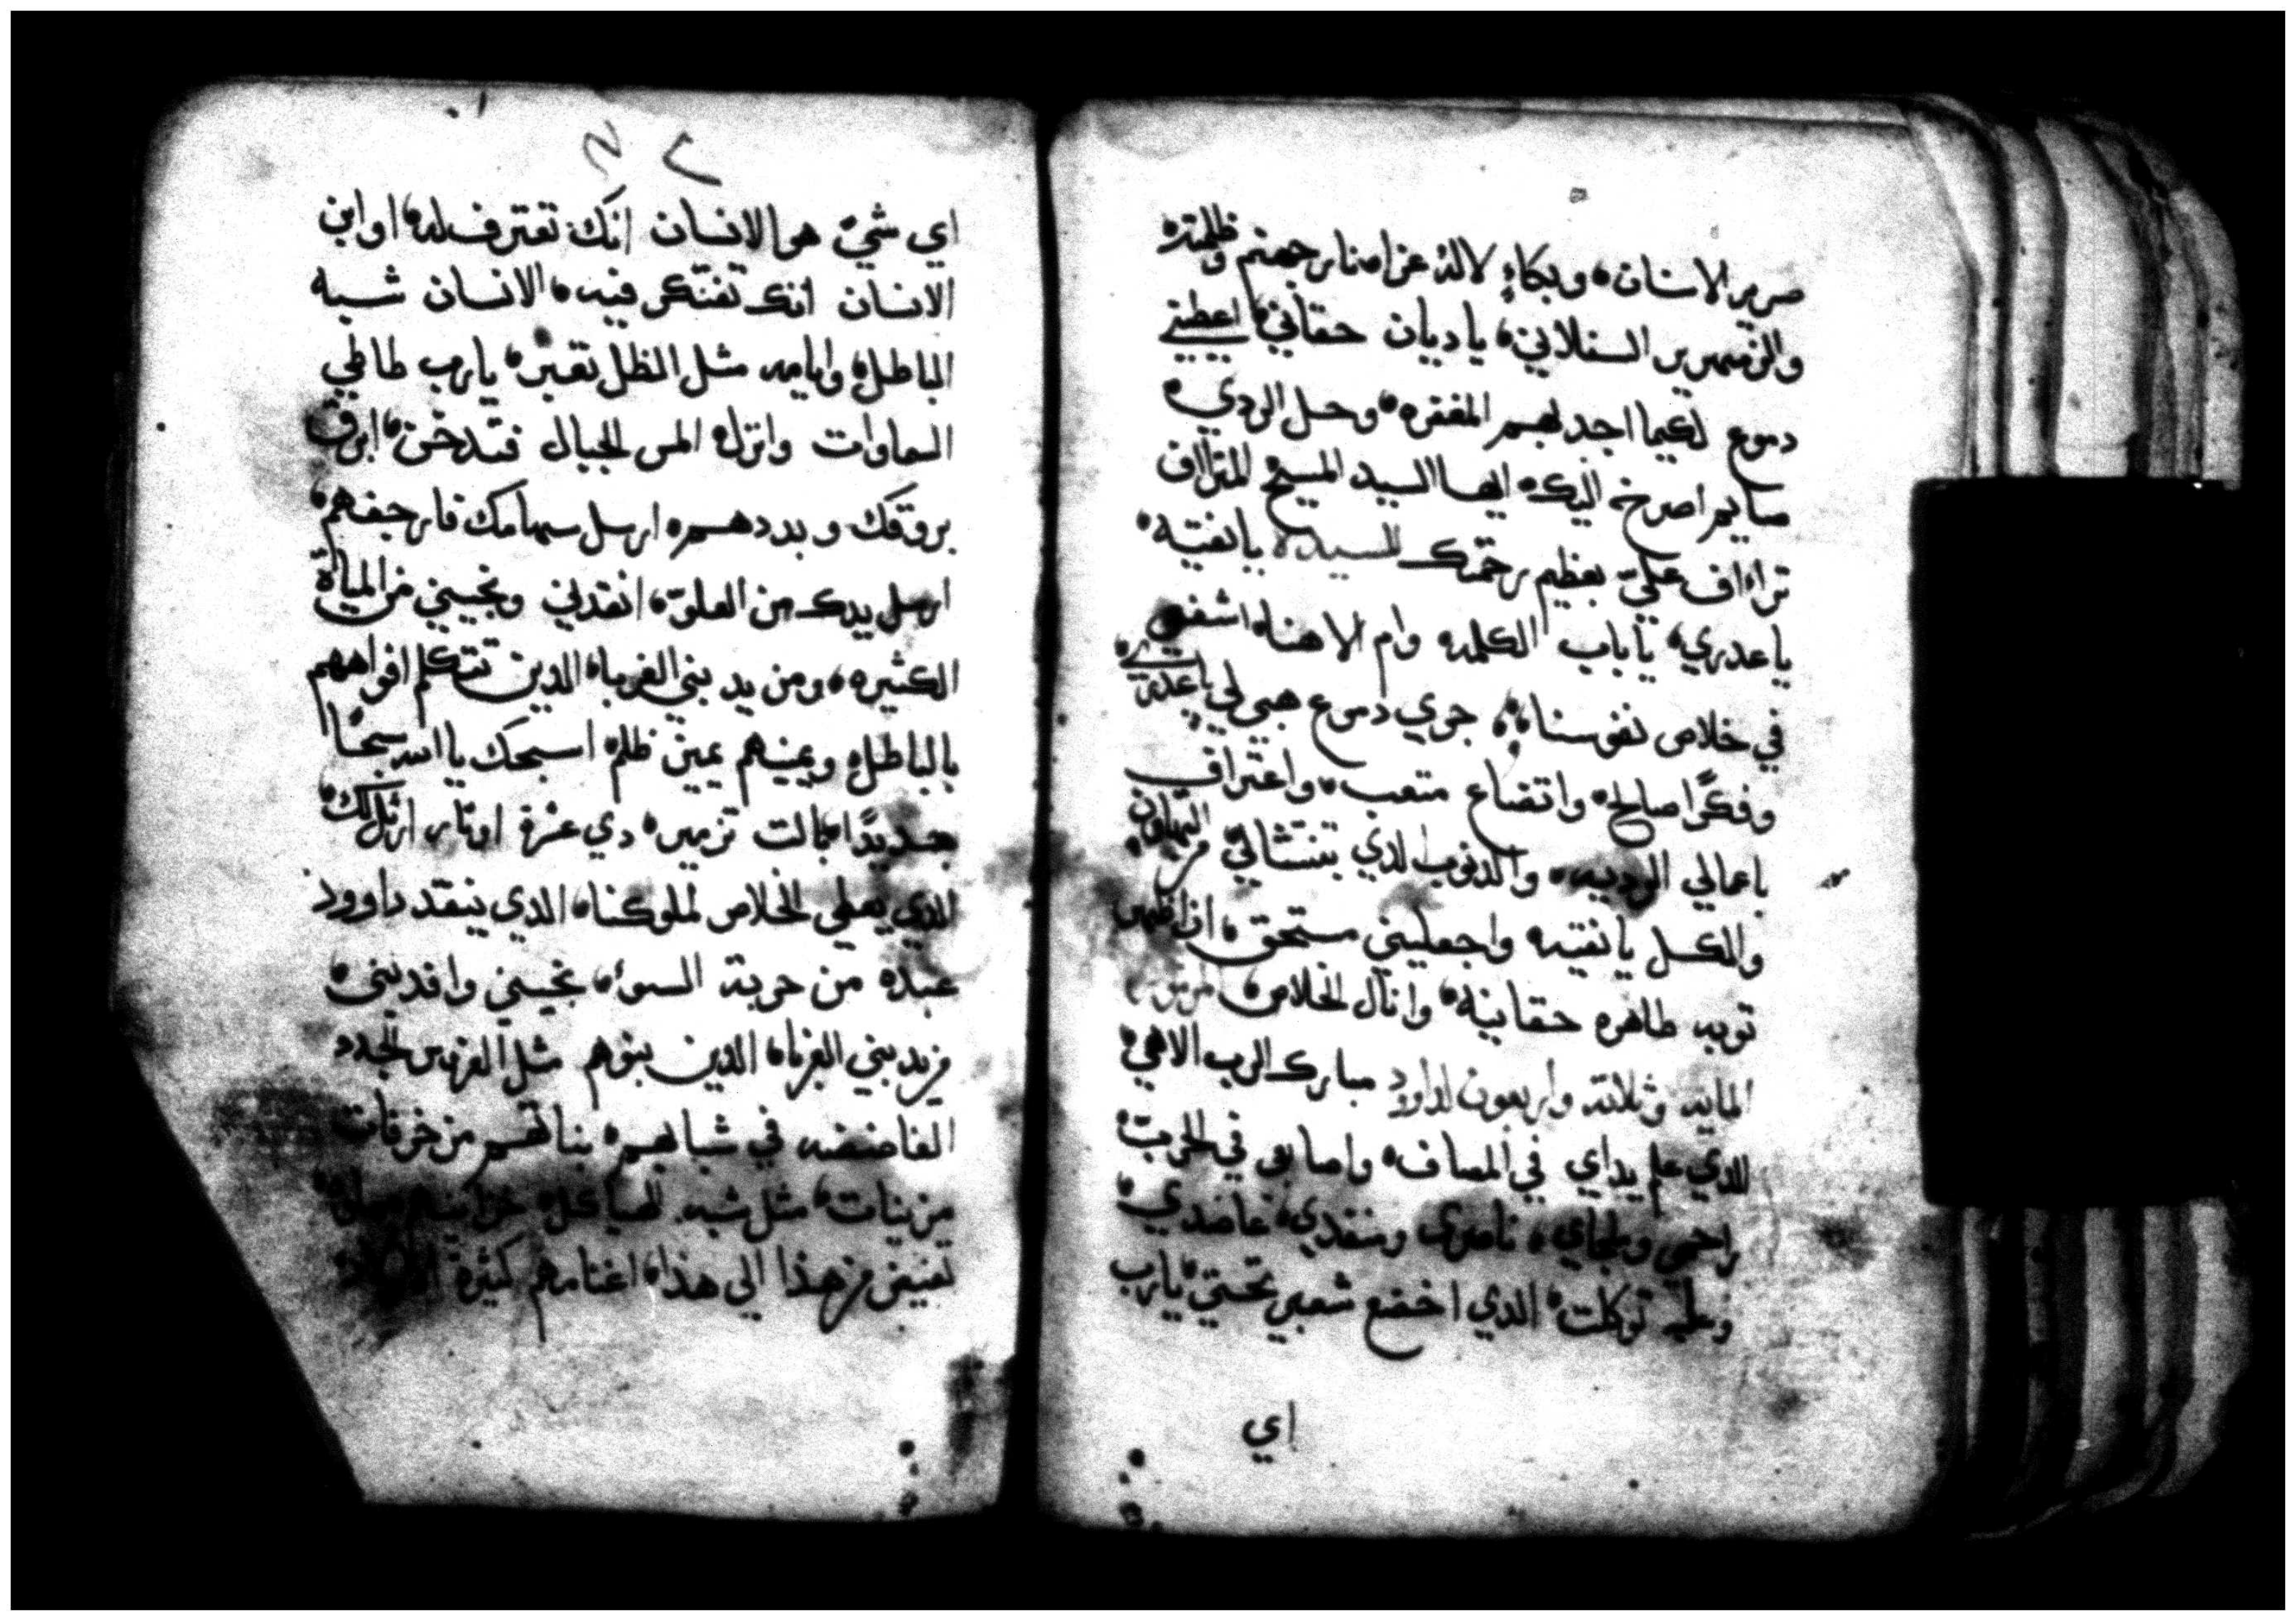 صرير الاسنان، وبكاءٍ لا لذ عزا منار جهنم وظلمته
والزمهرير السفلاني، ياديان حقاني، اعطيني
دموع لكيما اجد بهم المغفره، وحل الردي،
صايم اصرخ اليك، ايها السيد المسيح المتراف
تراااف عليّ بعظيم رحمتك للسيده يانقيه،
ياعدري، ياباب الكلمه وام الاهنا، اشفعي
في خلاص نفوسنا، جري دموع هبي لي ياعدري،
وفكرًا صالح، واتضاع متعب، واعتراف
باعمالي الرديه، والدنوب لدي تنتشالي من التهاون،
والكسل يانقيه واجعليني مستحق، ان اظهر
توبه طاهره حقانيه، وانال الخلاص، المزمور
المايه وثلاثة واربعون لداوود مبارك الرب الاهي،
الدي علم يداي في المصاف، واصابعي في الحرب،
راحمي وملجاي، ناصري ومنقدي، عاضدي،
وعليه توكلت، الدي اخضع شعبي تحتي، يارب
اي
اي شيٍ هو الانسان انك تعترف له، او ابن
الانسان انك تفتكر فيه، الانسان شبه
الباطل، وايامه مثل الظل تعبر، يارب طاطي
السماوات وانزل، المس الجبال فتدخن، ابرق
بروقك وبددهم، ارسل سهامك فارجفهم،
ارسل يدك من العلوّ، انقدني ونجيني من المياة
الكثيره، ومن يد بني الغربا، الدين تتكلم افواههم
بالباطل، ويمينهم يمين ظلم، اسبحك يا الله سبحًا
جديدًا، بالت تزمير، دي عشرة اوتار، ارتل لك،
الدي يعطي الخلاص لملوكنا، الدي ينقد داوود
عبده من حربة السوء، نجيني وانقدني،
من يد بني الغربا، الدين بنوهم مثل الغروس الجدد
الغاضضه في شبابهم، بناتهم مزخرفات
مزينات، مثل شبه الهياكل، خزاينهم
تفيض من هذا الي هذا، اغنامهم كثيرة